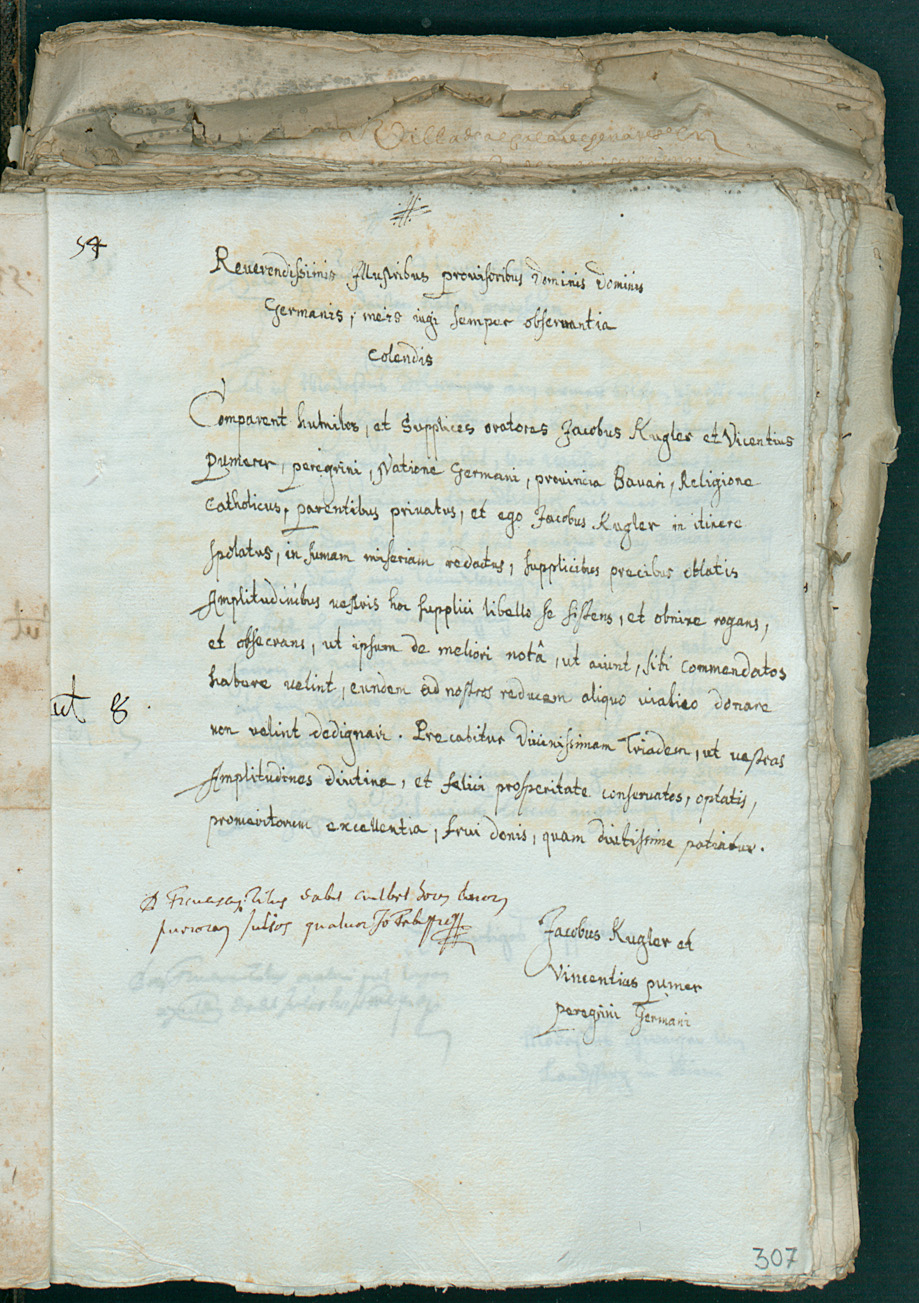 54
Reuerendissimis Illustribus prouisoribus Dominis Dominis
Germanis, meis iugi semper obseruantia
colendis
Comparent humiles, et supplices oratores Jacobus Kugler et Vicentius
pumerer, peregrini, Natione Germani, prouincia Bauari, Religione
catholicus, parentibus priuatus, et ego Jacobus Kugler in itinere
spolatus, in sumam miseriam redatus, supplicibus precibus oblatis
Amplitudinibus vestris hoc supplici libello se sistens, et obnixe rogans,
et obsecrans, ut ipsum de meliori notâ, ut aiunt, sibi commendatos
habere velint, eundem ad nostros reducem aliquo viatico donare
non velint dedignari. Precabitur Diuinissimam Triadem, ut vestras
Amplitudines diutina, et felici prosperitate conseruatos, optatis,
promeritorum excellentia, frui donis, quam diutissime patiatur.
ut 8.
dabit
Julios quatuor Jo
Jacobus Kugler et
Vincentius pumer
peregrini Germani
307